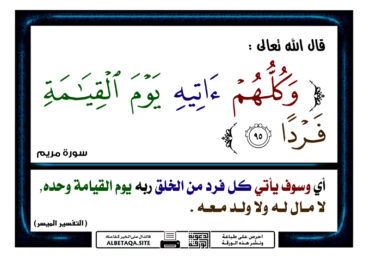 قال الله تعالى :
﴿ وَكُلُّهُمْ ءَاتِيهِ يَوْمَ ٱلْقِيَـٰمَةِ
فَرْدًا ٩٥ ﴾
سورة مريم
أي وسوف يأتي كل فرد من الخلق ربه يوم القيامة وحده,
لا مال له ولا ولد معه .
( التفسير الميسر )
احرص على طباعة
ونشر هذه الورقة
فالدال على الخير كفاعله
ALBETAQA.SITE